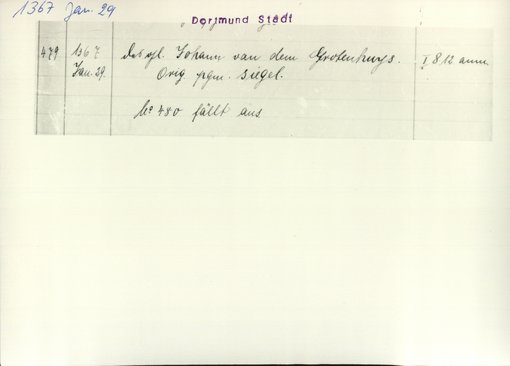 1367 Jan. 29
Dortmund Stadt
479 1367. Desgl. Johann van dem Grotenhuys. I 812 anm.
Jan. 29. Orig pgm. Siegel.
No 480 fällt aus